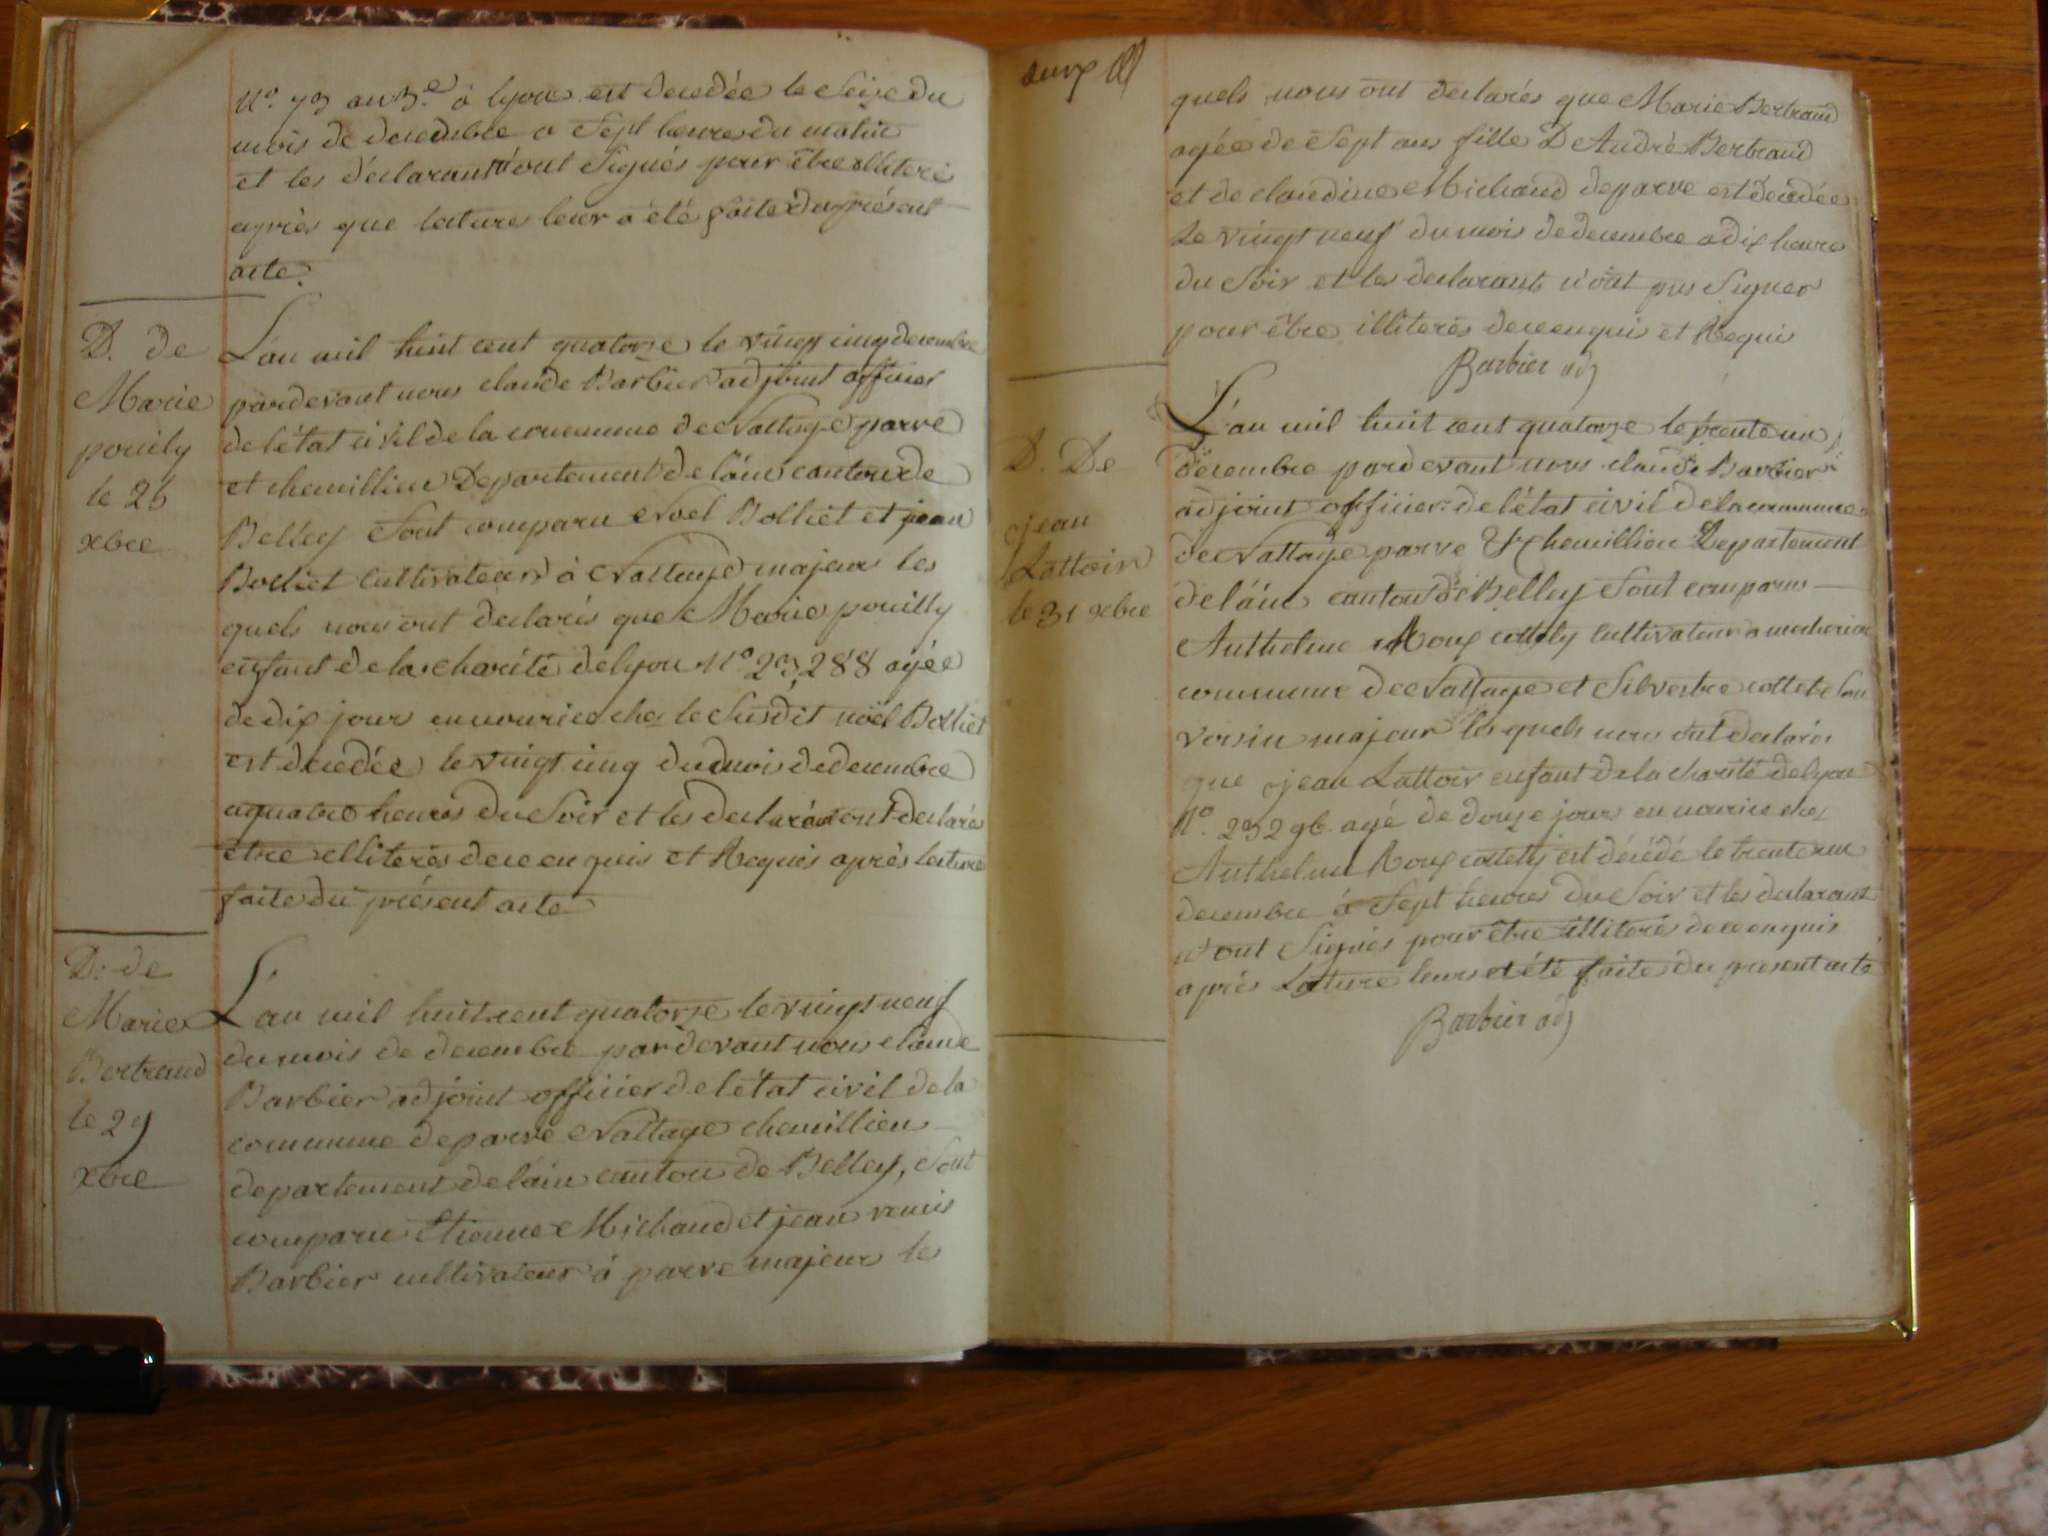 N°. 73 au 3.e à lyon est decedée le Seize du
mois de decembre a Sept heures du matin
et les déclarant n'ont Signés pour être illiteré
après que lecture leur a été faite du présent
acte.
D. de
Marie
pouily
le 25
xbre
L'an mil huit cent quatorze le vingt cinq decembre
pardevant nous claude Barbier adjoint officier
de l'état civil de la commune de Nattage parve
et chemillieu Departement de l'ain canton de
Belley Sont comparu Noel Bolliet et jean
Bolliet cultivateurs à Nattage majeur les
quels nous ont declarés que Marie pouilly
enfant de la charité de lyon N° 23,288 agée
de dix jours en nourice che le Susdit noël Bolliet
est decedée le vingt cinq du mois de decembre
a quatre heures du Soir et les declarant ont declarés
être illiterés de ce enquis et Requis après lecture
faite du présent acte
D. de
Marie
Bertrand
le 29
xbre
L'an mil huit cent quatorze le vingt neuf
du mois de decembre pardevant nous claude
Barbier adjoint officier de l'état civil de la
commune de parve Nattage chemillieu
departement de l'ain canton de Belley, Sont
comparu Etienne Michaud et jean
Barbier cultivateur à parve majeur les
quels nous ont declarés que Marie Bertrand
agée de Sept ans fille D André Bertrand
et de claudine Michaud de parve est decedée
Le vingt neuf du mois de decembre a dix heure
du Soir et les declarants n'ont pus Signer
pour être illiterés de ce enquis et Requis
Barbier adj
D. De
jean
Lattoir
le 31 xbre
L'an mil huit cent quatorze le trente un
décembre pardevant nous claude Barbier
adjoint officier de l'état civil de la commune
de Nattage parve & chemillieu Departement
de l'ain canton de Belley Sont comparus
Anthelme Roux cultivateur a
commune de Nattage et Silvestre collet Son
voisin majeur les quels nous ont declarés
que jean Lattoir enfant de la charité de lyon
N°. 23296 agé de douze jour en nourice chez
Anthelme Roux est décédé le trente un
decembre à Sept heures du Soir et les declarant
n'ont Signés pour être illiteré de ce enquis
après Lecture leurs et été faite du present acte
Barbier adj